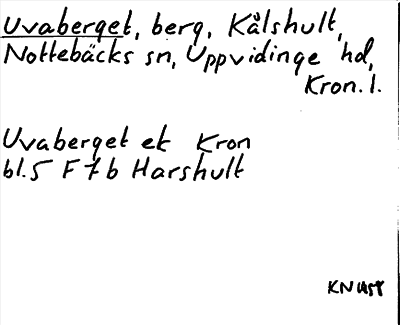 Uvaberget, berg, Kålshult,
Nottebäcks sn, Uppvidinge hd,
Kron. l.
Uvaberget ek Kron
bl.5 F7b Harshult